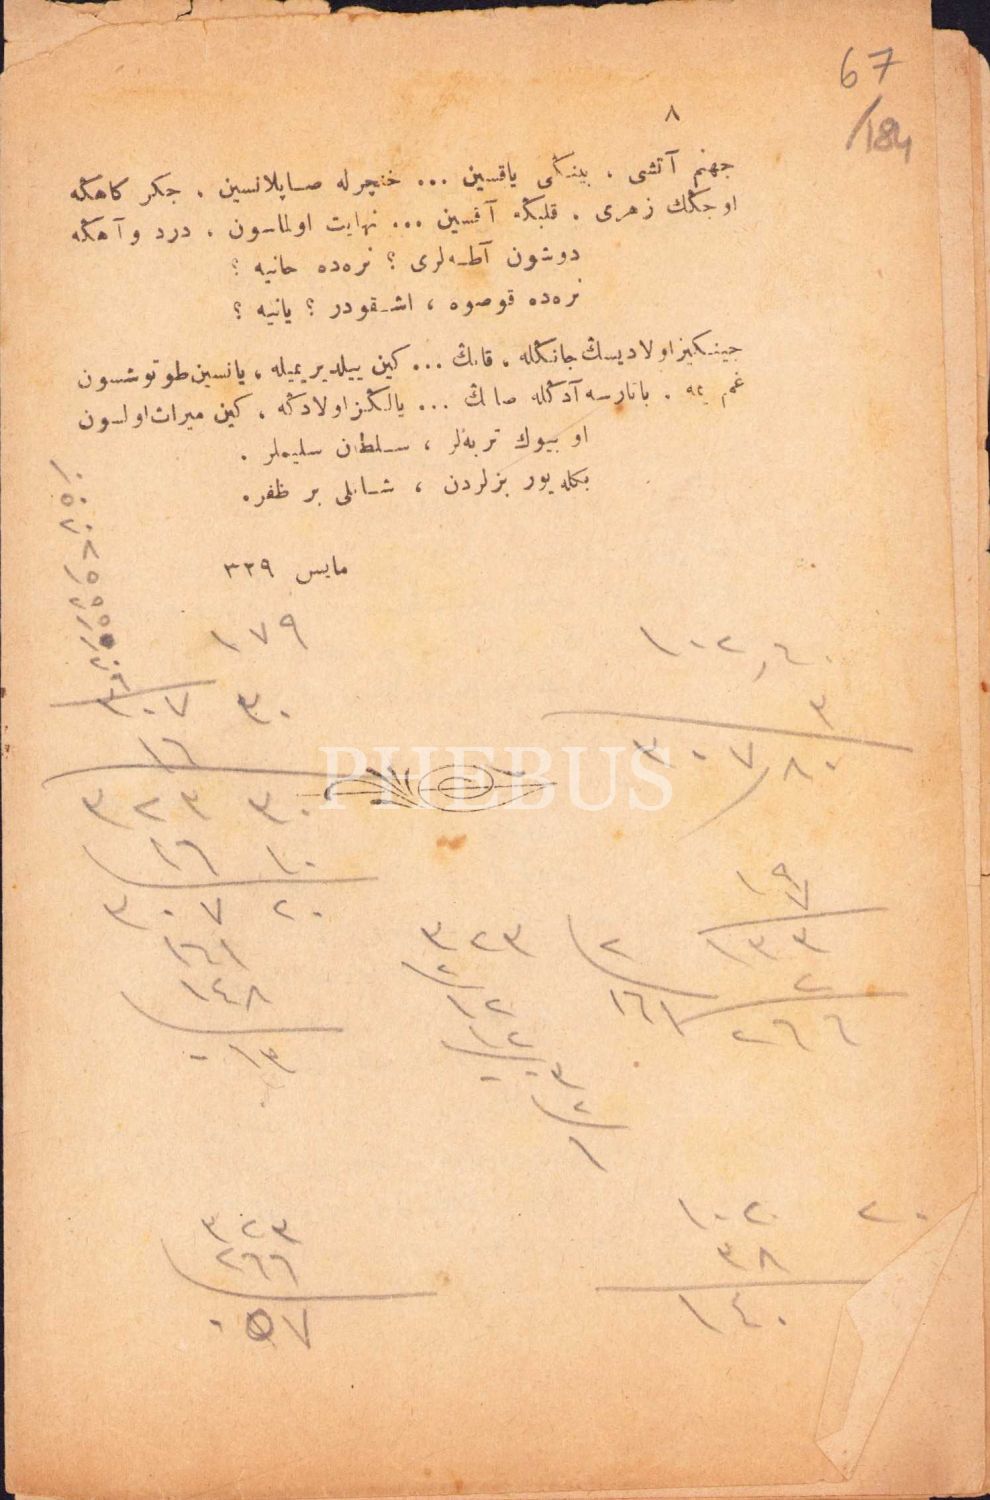 67
/184
٨
جهنم آتشی ، بینڭی یاقسین ... خنچرله صاپلانسین ، جکر کاهڭه
اوجڭك زهری ، قلبڭه آقسین ... نهایت اولماسون ، درد و آهڭه
دوشون آطه‌لری ؟ نره‌ده حانیه ؟
نره‌ده قوصوه ، اشقودر ؟ یانیه ؟
جینکیز اولادیسڭ جانڭله ، قانڭ ... کین ییلدیریمیله ، یانسین طوتوشسون
غم یمه . بانارسه آدڭله صاڭ ... یالڭز اولادڭه ، کین میراث اولسون
او بیوك تربه‌لر ، سلطان سلیملر .
بکله‌یور بزلردن ، شانلی بر ظفر .
مایس ٣٢٩
١٧٩
٣٠٧ ٣٠
١٦
٣٢٣ ٣٠
١٦ ١٠
٣٠٧ ٢٠
١٦١
١٤٨
٠١٣
١٠٢,٦٠
٣
٣٠٧,٨٠
١٩
٧
١٣٣
٢
٢٦٦
٣٢٣ ٢
٢ ١٦١
١٢
١٢
٠٠٣
٢
١
٣٢٣
٢٦٦
٠٥٧
١٠٢٠ ٢٠
٣٨
١٤٠
PHEBUS